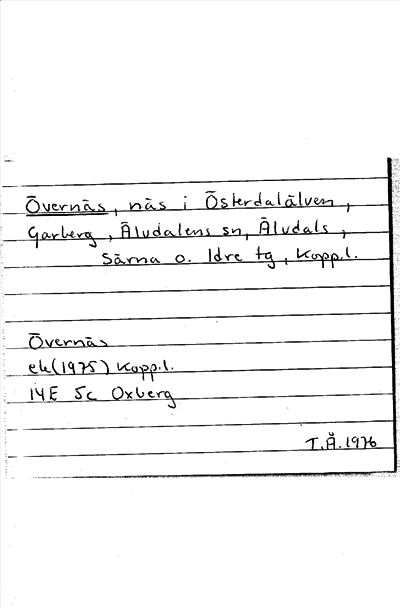 Övernäs, näs i Österdalälven,
Garberg, Älvdalens sn, Älvdals,
Särna o. Idre tg, Kopp.l.
Övernäs
ek(1975) Kopp.l.
14E 5c Oxberg
T.Å.1976